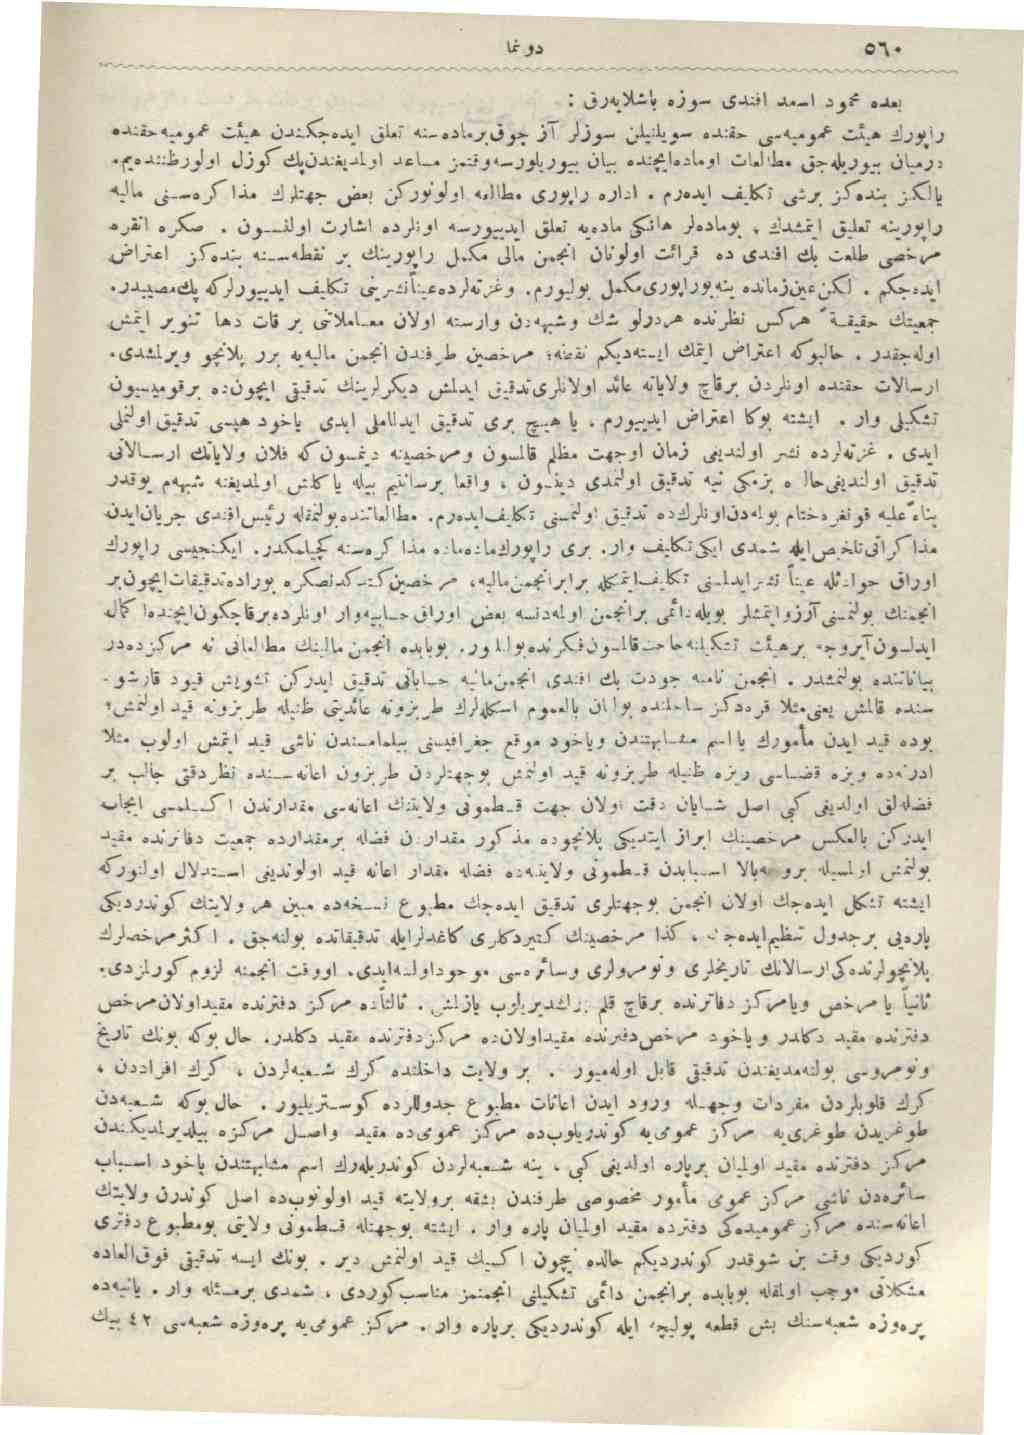 ٥٦٠
دونما
بعده محمود اسعد افندی سوزه باشلایه‌رق :
راپورك هیئت عمومیه‌سی حقنده سویلنیلن سوزلر آز چوق برماده‌سنه تعلق ایده‌جکندن هیئت عمومیه‌حقنده
درمیان بیوریله‌جق مطالعات اوماده‌ایچنده بیان بیوریلورسه‌وقتمز مساعد اولمدیغندن‌پك کوزل اولورظننده‌یم.
یالکز بنده‌کز برشی تکلیف ایده‌رم . اداره راپوری مطالعه اولونورکن بعض جهتلرك مذاکره‌سنی مالیه
راپورینه تعلیق ایتمشدك ، بوماده‌لر هانکی ماده‌یه تعلق ایدییورسه اونلرده اشارت اولنسون . صکره انقره
مرخصی طلعت بك افندی ده قرائت اولونان انجمن مالی مکمل راپورینك بر نقطه‌سنه بنده‌کز اعتراض
ایده‌جکم . لکن‌عین‌زمانده ینه‌بوراپوری‌مکمل بولیورم. وغزته‌لرده‌عیناًنشرینی تکلیف ایدییورلرکه پك‌مصیبدر.
جمعیتك حقیقةً هرکس نظرنده هردرلو شك وشبهه‌دن وارسته اولان معاملاتنی بر قات دها تنویر ایتمش
اوله‌جقدر . حالبوکه اعتراض ایتمك ایسته‌دیکم نقطه؛ مرخصین طرفندن انجمن مالیه‌یه برر پلانچو ویرلمشدی.
ارسالات حقنده اونلردن برقاچ ولایاته عائد اولانلری‌تدقیق ایدلمش دیکرلرینك تدقیقی ایچون‌ده برقومیسیون
تشکیلی وار . ایشته بوکا اعتراض ایدییورم ، یا هیچ بری تدقیق ایدلماملی ایدی یاخود هپسی تدقیق اولنملی
ایدی . غزته‌لرده نشر اولندیغی زمان اوجهت مظلم قالمسون ومرخصینه دینمسون‌که فلان ولایاتك ارسالاتی
تدقیق اولندیغی‌حالده بزمکی نیه تدقیق اولنمدی دینلسون ، واقعا برسانتیم بیله یاکلش اولمدیغنه شبهه‌م یوقدر
بناءًعلیه قونغره‌ختام بولمه‌دن‌اونلرك‌ده تدقیق اولنمسنی تکلیف‌ایده‌رم. مطالعاتنده‌بولنمقله رئیس‌افندی جریان‌ایدن
مذاکراتی‌تلخیص‌ایله شمدی ایکی‌تکلیف وار. بری راپورك‌ماده‌ماده مذاکره‌سنه کچیلمکدر. ایکنجیسی راپورك
اوراق حوادثله عیناً نشرایدلمسنی تکلیف‌ایتمکله برابرانجمن‌مالیه، مرخصین‌کتدکدنصکره بوراده‌تدقیقات‌ایچون‌بر
انجمنك بولنمسنی‌آرزوایتمشلر بویله‌دائمی برانجمن اوله‌دنسه بعض اوراق حسابیه‌وار اونلرده‌برقاچکون‌ایچنده‌اکمال
ایدلسون‌آیروجه برهیئت تشکیلنه‌حاجت‌قالمسون‌فکرنده‌بولنلور. بوبابده انجمن مالینك مطالعاتی نه مرکزده‌در
بیاناتنده بولنمشدر . انجمن نامنه جودت بك افندی انجمن‌مالیه حساباتی تدقیق ایدرکن تشویش قیود قارشو-
سنده قالمش یعنی‌مثلا قره‌دکز ساحلنده بولنان بالعموم اسکله‌لرك طربزونه عائدیتی ظنیله طربزونه قید اولنمش؛
بوده قید ایدن مأمورك یااسم مشابهتندن ویاخود موقع جغرافیسنی بیلمامسندن ناشی قید ایتمش اولوب مثلا
ادرنه‌ده ویزه قضاسی ریزه ظنیله طربزونه قید اولنمش بوجهتلردن طربزون اعانه‌سنده نظردقتی جالب بر
فضله‌لق اولدیغی کبی اصل شایان دقت اولان جهت قسطمونی ولایتنك اعانه‌سی مقدارندن اکسلمسی ایجاب
ایدرکن بالعکس مرخصینك ابراز ایتدیکی پلانچوده مذکور مقداردن فضله برمقدارده جمعیت دفاترنده مقید
بولنمش اولمسیله بروجه‌بالا اسبابدن قسطمونی ولایتنه‌ده فضله مقدار اعانه قید اولوندیغی استدلال اولنورکه
ایشته تشکل ایده‌جك اولان انجمن بوجهتلری تدقیق ایده‌جك مطبوع نسخه‌ده مبین هر ولایتك کوندردیکی
پاره‌یی برجدول تنظیم‌ایده‌جك ، کذا مرخصینك کتیردکلری کاغدلرایله تدقیقاتده بولنه‌جق . اکثرمرخصلرك
پلانچولرنده‌کی‌ارسالاتك تاریخلری ونومرولری وسائره‌سی موجوداولسه‌ایدی. اووقت انجمنه لزوم کورلمزدی.
ثانیاً یا مرخص ویامرکز دفاترنده برقاچ قلم برلشدیریلوب یازلمش . ثالثاًده مرکز دفترنده مقیداولان‌مرخص
دفترنده مقید دکلدر ویاخود مرخص‌دفترنده مقیداولان‌ده مرکزدفترنده مقید دکلدر. حال بوکه بونك تاریخ
ونومروسی بولنه‌مدیغندن تدقیقی قابل اوله‌میور . بر ولایت داخلنده کرك شعبه‌لردن ، کرك افراددن ،
کرك قلوبلردن مفردات وجهله ورود ایدن اعانات مطبوع جدوللرده کوستریلیور . حال بوکه شعبه‌دن
طوغریدن طوغری‌یه مرکز عمومی‌یه کوندریلوب‌ده مرکز عمومی‌ده مقید واصل مرکزه بیلدیرلمدیکندن
مرکز دفترنده مقید اولمیان برپاره اولدیغی کبی ، ینه شعبه‌لردن کوندریله‌رك اسم مشابهتندن یاخود اسباب
سائره‌دن ناشی مرکز عمومی مأمور مخصوصی طرفندن بشقه برولایته قید اولونوب‌ده اصل کوندرن ولایتك
اعانه‌سنده مرکز عمومیده‌کی دفترده مقید اولمیان پاره وار . ایشته بوجهتله قسطمونی ولایتی بومطبوع دفتری
کوردیکی وقت بن شوقدر کوندردیکم حالده نیچون اکسیك قید اولنمش دیر . بونك ایسه تدقیقی فوق‌العاده
مشکلاتی موجب اولمقله بوبابده برانجمن دائمی تشکیلنی انجمنمز مناسب‌کوردی ، شمدی برمسئله وار . یانیه‌ده
پره‌وزه شعبه‌سنك بش قطعه پولیچه ایله کوندردیکی برپاره وار . مرکز عمومی‌یه پره‌وزه شعبه‌سی ٤٢ بیك